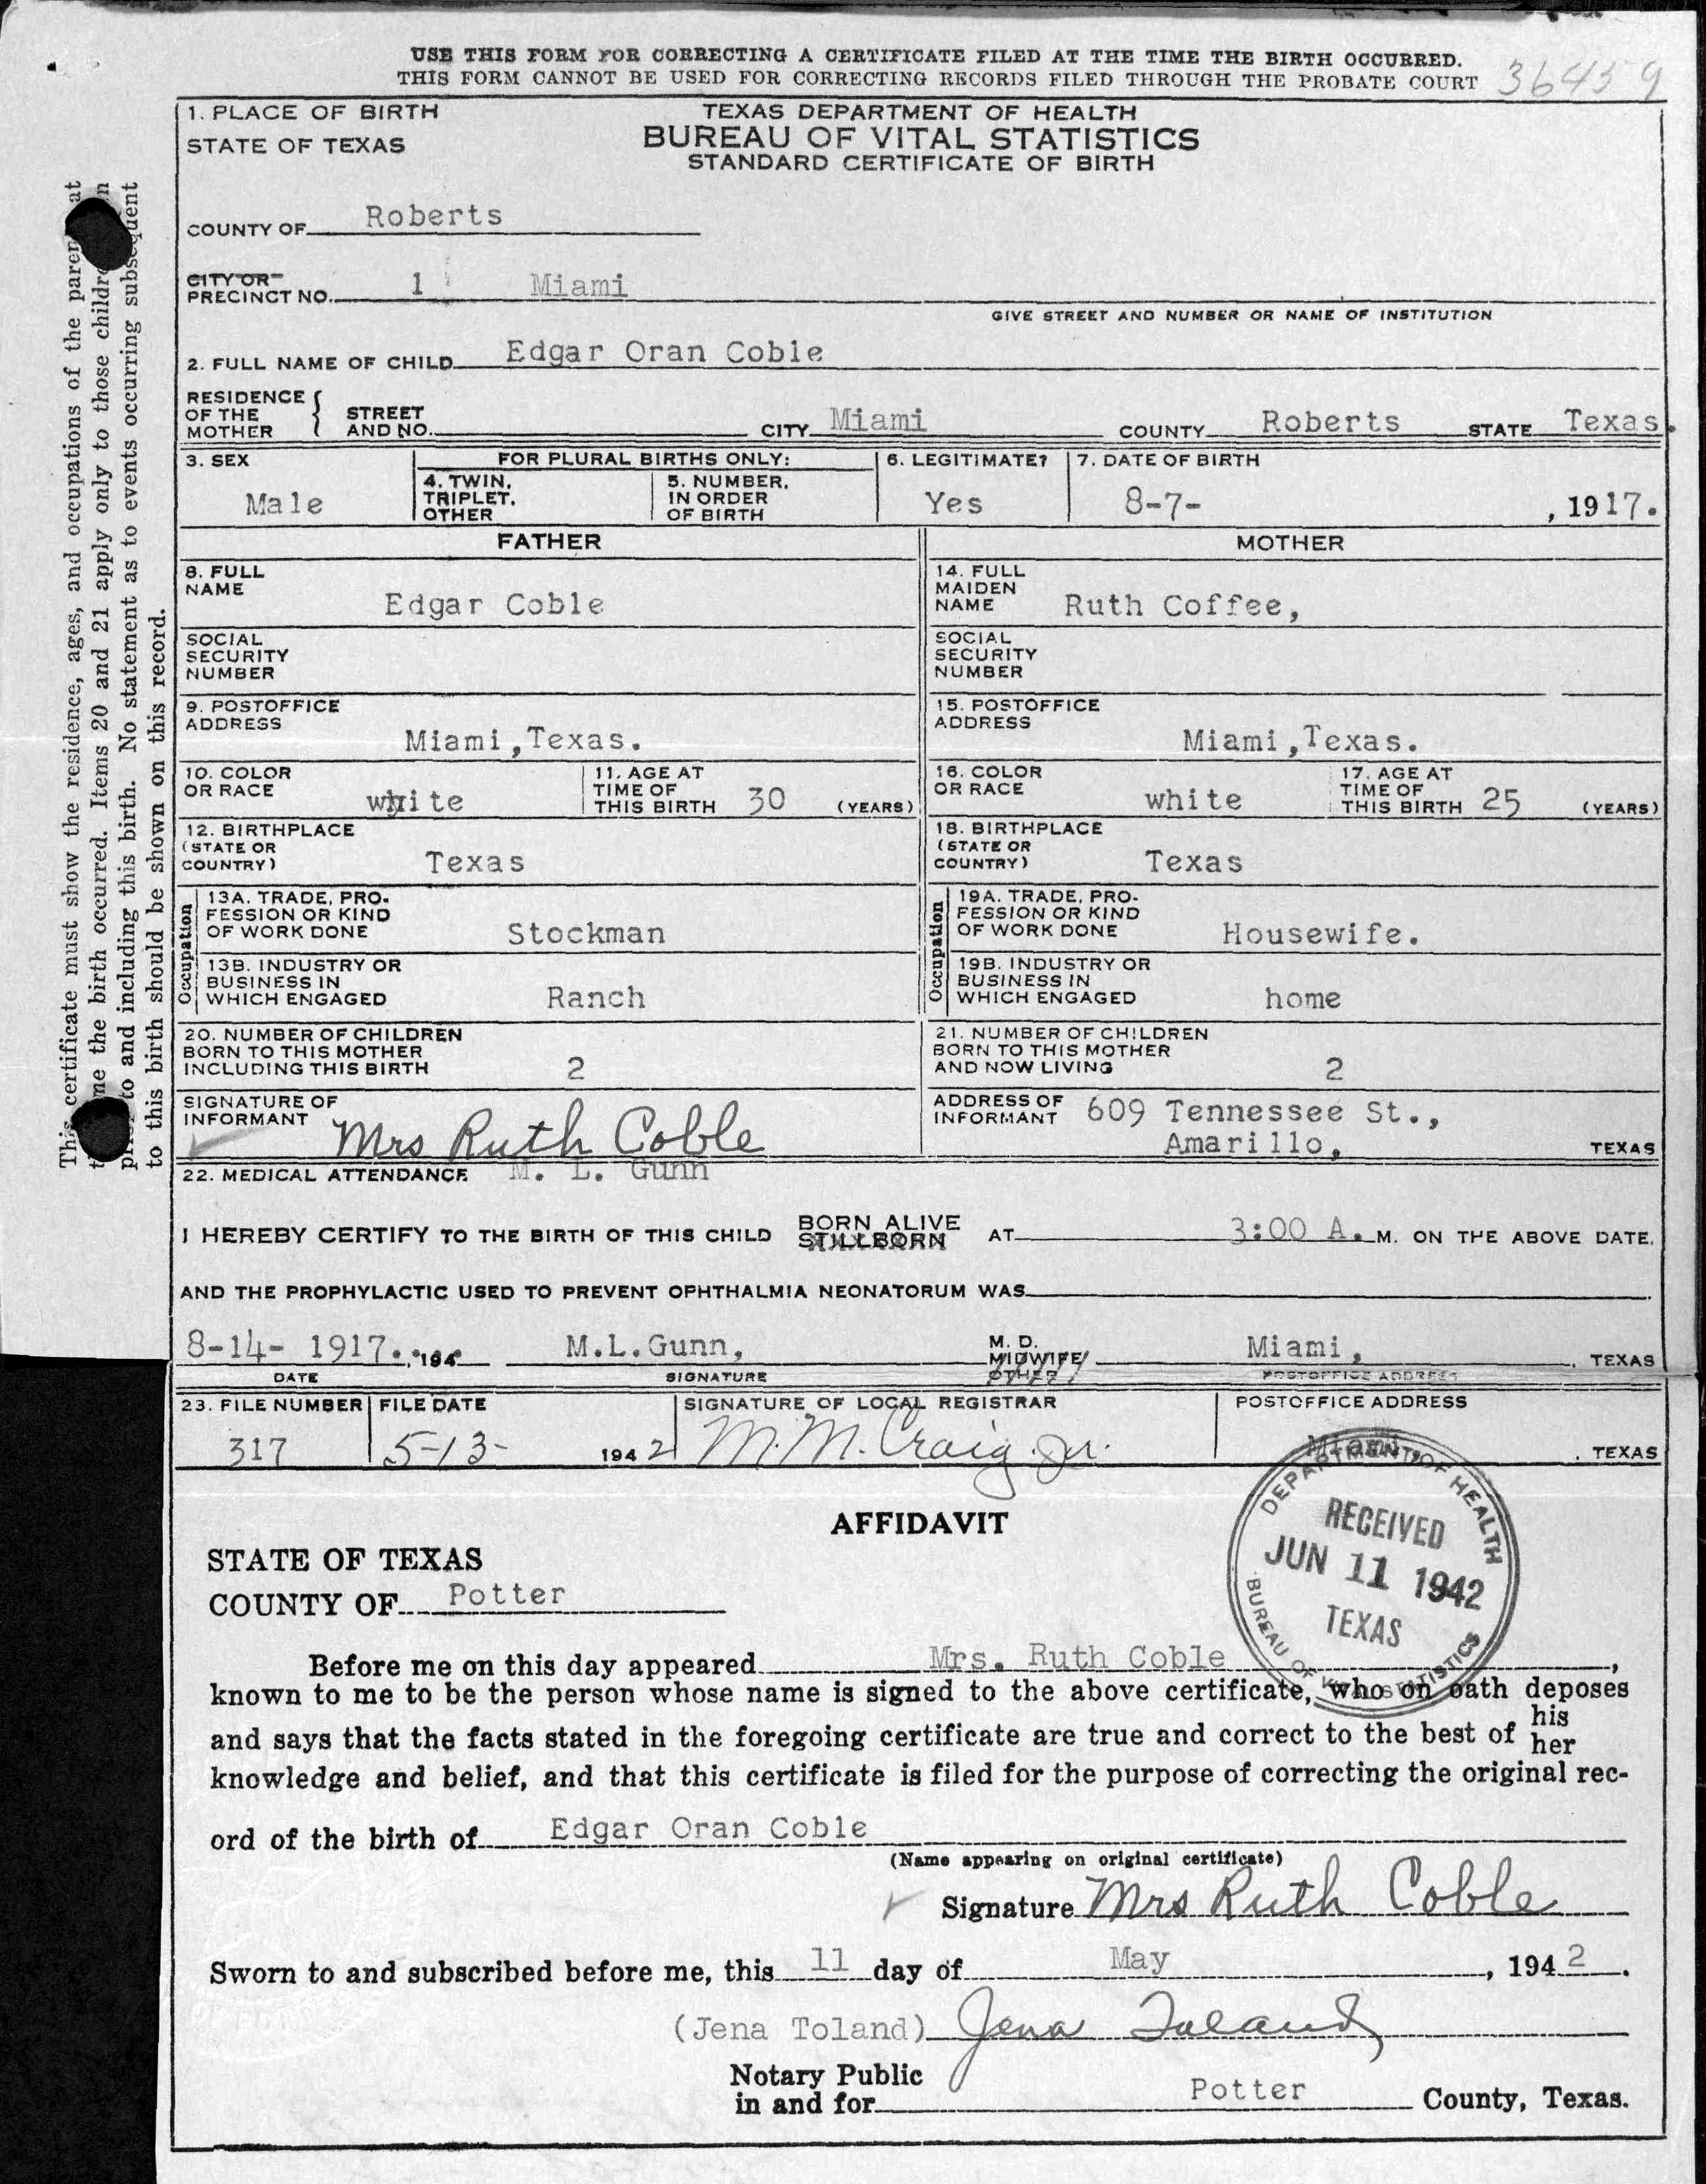 USE THIS FORM FOR CORRECTING A CERTIFICATE FILED AT THE TIME THE BIRTH OCCURRED.
THIS FORM CANNOT BE USED FOR CORRECTING RECORDS FILED THROUGH THE PROBATE COURT
36459
1. PLACE OF BIRTH
STATE OF TEXAS
TEXAS DEPARTMENT OF HEALTH
BUREAU OF VITAL STATISTICS
STANDARD CERTIFICATE OF BIRTH
COUNTY OF Roberts
CITY OR
PRECINCT NO. 1 Miami
GIVE STREET AND NUMBER OR NAME OF INSTITUTION
2. FULL NAME OF CHILD Edgar Oran Coble
RESIDENCE
OF THE
MOTHER
STREET
AND NO.
CITY Miami COUNTY Roberts STATE Texas.
3. SEX
Male
FOR PLURAL BIRTHS ONLY:
4. TWIN,
TRIPLET,
OTHER
5. NUMBER,
IN ORDER
OF BIRTH
6. LEGITIMATE?
Yes
7. DATE OF BIRTH
8-7- , 1917.
FATHER
MOTHER
8. FULL
NAME
Edgar Coble
14. FULL
MAIDEN
NAME
Ruth Coffee,
SOCIAL
SECURITY
NUMBER
SOCIAL
SECURITY
NUMBER
9. POSTOFFICE
ADDRESS
Miami,Texas.
15. POSTOFFICE
ADDRESS
Miami,Texas.
10. COLOR
OR RACE
white
11. AGE AT
TIME OF
THIS BIRTH 30 (YEARS)
16. COLOR
OR RACE
white
17. AGE AT
TIME OF
THIS BIRTH 25 (YEARS)
12. BIRTHPLACE
(STATE OR
COUNTRY)
Texas
18. BIRTHPLACE
(STATE OR
COUNTRY)
Texas
Occupation
13A. TRADE, PRO-
FESSION OR KIND
OF WORK DONE
Stockman
Occupation
19A. TRADE, PRO-
FESSION OR KIND
OF WORK DONE
Housewife.
13B. INDUSTRY OR
BUSINESS IN
WHICH ENGAGED
Ranch
19B. INDUSTRY OR
BUSINESS IN
WHICH ENGAGED
home
20. NUMBER OF CHILDREN
BORN TO THIS MOTHER
INCLUDING THIS BIRTH
2
21. NUMBER OF CHILDREN
BORN TO THIS MOTHER
AND NOW LIVING
2
SIGNATURE OF
INFORMANT
Mrs Ruth Coble
ADDRESS OF
INFORMANT
609 Tennessee St.,
Amarillo, TEXAS
22. MEDICAL ATTENDANCE M. L. Gunn
I HEREBY CERTIFY TO THE BIRTH OF THIS CHILD BORN ALIVE
STILLBORN
AT 3:00 A. M. ON THE ABOVE DATE.
AND THE PROPHYLACTIC USED TO PREVENT OPHTHALMIA NEONATORUM WAS
8-14- 1917. 194
DATE
M.L.Gunn,
SIGNATURE
M. D.
MIDWIFE
OTHER
Miami, TEXAS
POSTOFFICE ADDRESS
23. FILE NUMBER
317
FILE DATE
5-13- 1942
SIGNATURE OF LOCAL REGISTRAR
M.M. Craig. Jr.
POSTOFFICE ADDRESS
Miami, TEXAS
DEPARTMENT OF HEALTH
RECEIVED
JUN 11 1942
TEXAS
BUREAU OF VITAL STATISTICS
AFFIDAVIT
STATE OF TEXAS
COUNTY OF Potter
Before me on this day appeared Mrs. Ruth Coble ,
known to me to be the person whose name is signed to the above certificate, who on oath deposes
and says that the facts stated in the foregoing certificate are true and correct to the best of his
her
knowledge and belief, and that this certificate is filed for the purpose of correcting the original rec-
ord of the birth of Edgar Oran Coble
(Name appearing on original certificate)
Signature Mrs Ruth Coble
Sworn to and subscribed before me, this 11 day of May , 1942.
(Jena Toland) Jena Toland
Notary Public
in and for Potter County, Texas.
This certificate must show the residence, ages, and occupations of the at
the birth occurred. Items 20 and 21 apply only to those
to and including this birth. No statement as to events occurring subsequent
to this birth should be shown on this record.